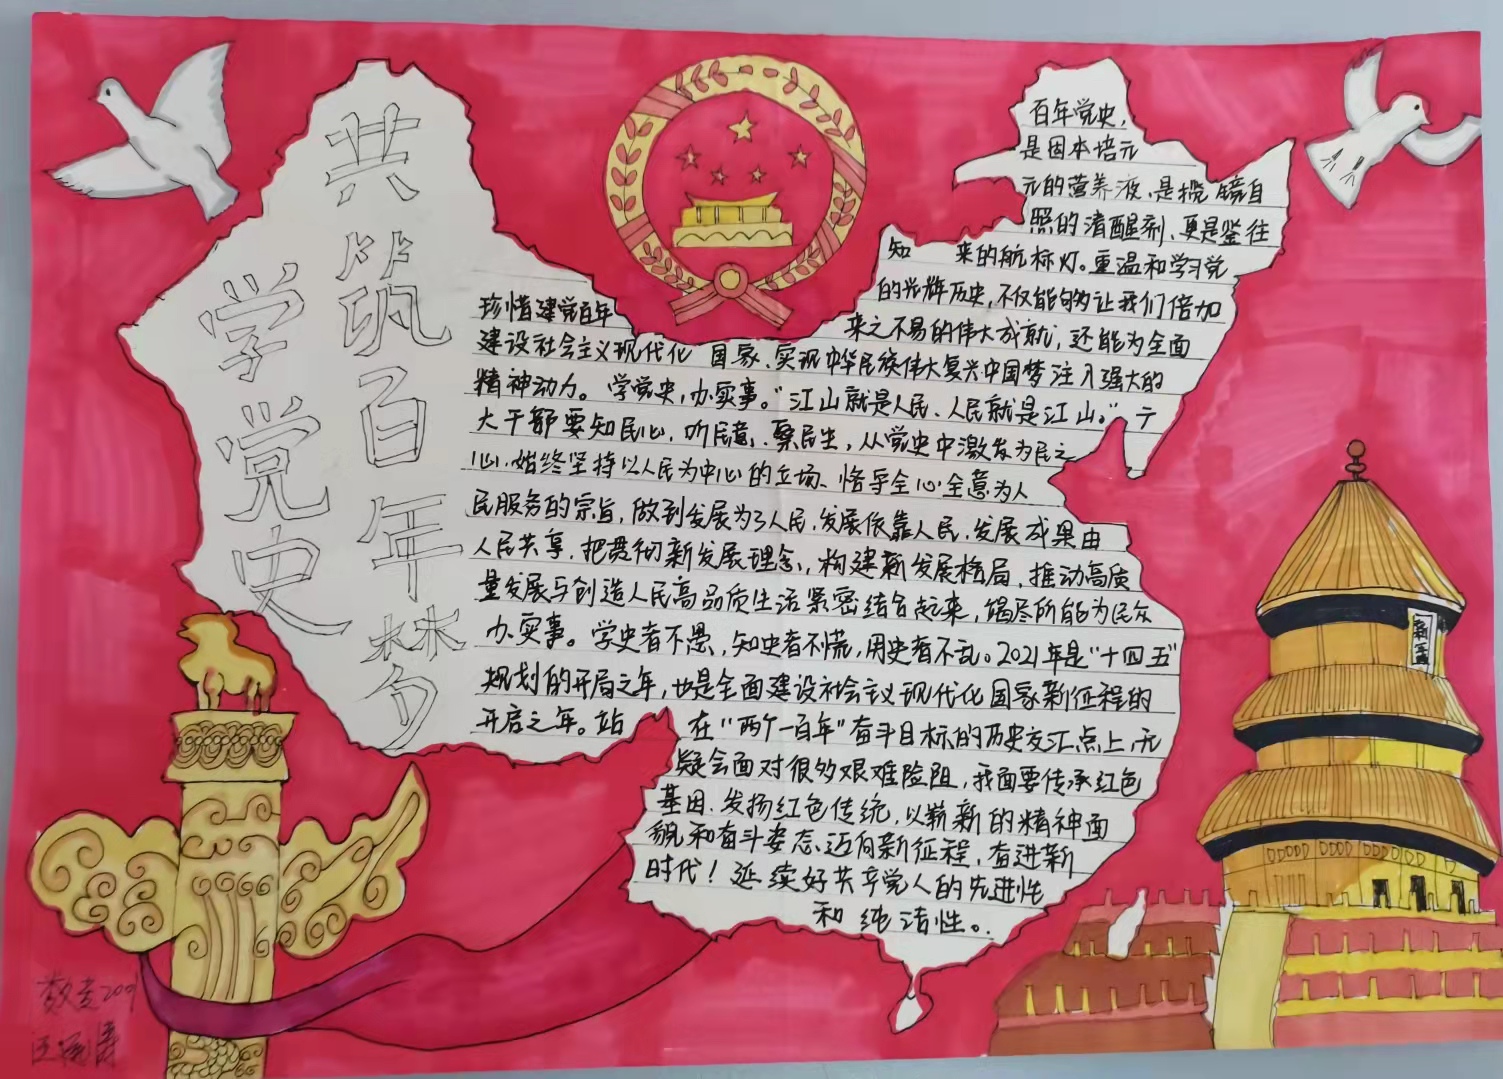 共筑百年梦
学党史
百年党史,
是固本培元
元的营养液、是揽镜自
照的清醒剂、更是鉴往
知来的航标灯。重温和学习党
的光辉历史,不仅能够让我们倍加
珍惜建党百年
来之不易的伟大成就,还能为全面
建设社会主义现代化国家、实现中华民族伟大复兴中国梦注入强大的
精神动力。学党史,办实事。“江山就是人民、人民就是江山。”
大干部要知民心,听民意、察民生,从党史中激发为民之
心,始终坚持以人民为中心的立场、恪守全心全意为人
民服务的宗旨,做到发展为了人民,发展依靠人民,发展成果由
人民共享,把贯彻新发展理念,构建新发展格局,推动高质
量发展与创造人民高品质生活紧密结合起来,竭尽所能为民众
办实事。学史者不愚,知史者不慌,用史者不乱。2021年是“十四五”
规划的开局之年,也是全面建设社会主义现代化国家新征程的
开启之年。站在“两个一百年”奋斗目标的历史交汇点上,无
疑会面对很多艰难险阻,我面要传承红色
基因、发扬红色传统,以崭新的精神面
貌和奋斗姿态迈向新征程,奋进新
时代!延续好共产党人的先进性
和纯洁性。